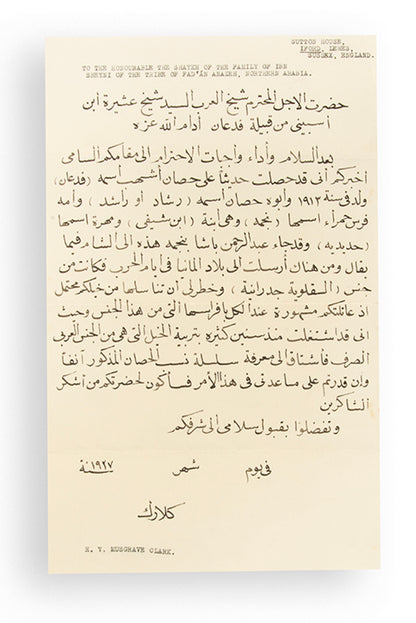 SUTTON HOUSE,
IFORD, LEWES,
SUSSEX, ENGLAND.
TO THE HONOURABLE THE SHAYKH OF THE FAMILY OF IBN
SBEYNI OF THE TRIBE OF FAD'ÁN ANAZEH, NORTHERN ARABIA.
حضرت الاجل المحترم شيخ العرب السيد شيخ عشيرة ابن
اسبيني من قبيلة فدعان أدام الله عزه
بعد السلام وأداء واجبات الاحترام الى مقامكم السامي
أخبركم أنى قد حصلت حديثا على حصان أشهب اسمه (فدعان)
ولد في سنة ١٩١٣ وابوه حصان أسمه (رشاد أو راشد) وأمه
فرس حمراء اسمها (نجمه) وهى أبنة (ابن شيفى) ومهرة اسمها
(حديديه) وقد جاء عبد الرحمن باشا بنجمه هذه الى الشام فيما
يقال ومن هناك أرسلت الى بلاد المانيا فى أيام الحرب فكانت من
جنس (السقلوية جدرانة) وخطر لى أن تناسلها من خيلكم محتمل
اذ عائلتكم مشهورة عند الكل بافراسها التى من هذا الجنس وحيث
انى قد اشتغلت منذ سنين كثيرة بتربية الخيل التى هى من الجنس العربى
الصرف فأشتاق الى معرفة سلسلة نسب الحصان المذكور آنفا
وان قدرتم على مساعدتى فى هذا الأمر فسأكون لحضرتكم من أشكر
الشاكرين
وتفضلوا بقبول سلامى الى شرفكم
فى يوم شهر سنة ١٩٢٧
كلارك
H. V. MUSGRAVE CLARK.